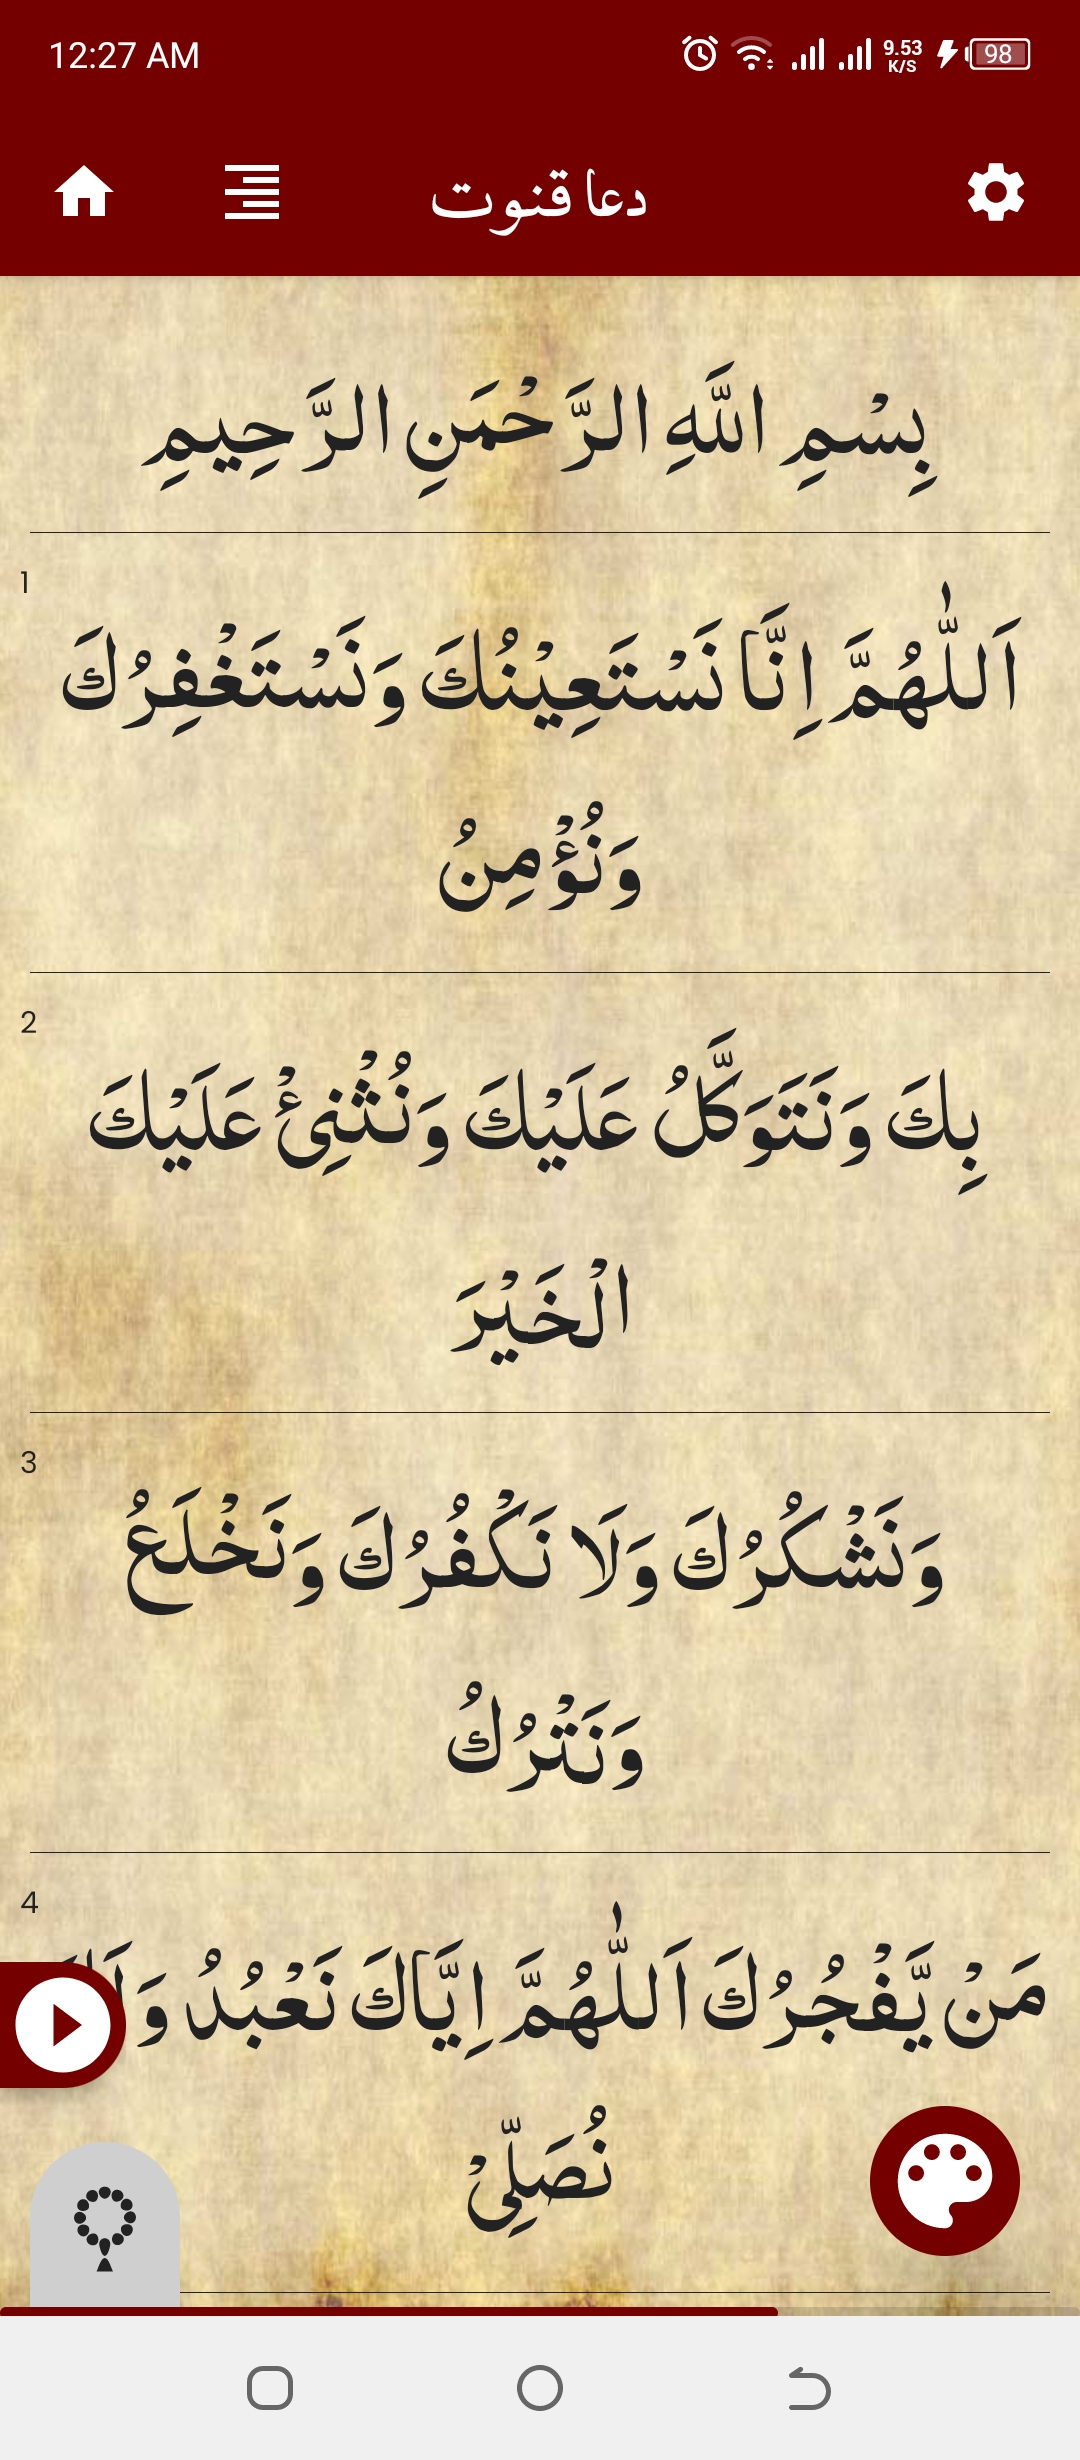 12:27 AM
9.53
K/S
98
دعا قنوت
بِسْمِ اللَّهِ الرَّحْمَنِ الرَّحِيمِ
1
اَللّٰهُمَّ اِنَّا نَسْتَعِيْنُكَ وَنَسْتَغْفِرُكَ
وَنُؤْمِنُ
2
بِكَ وَنَتَوَكَّلُ عَلَيْكَ وَنُثْنِئْ عَلَيْكَ
الْخَيْرَ
3
وَنَشْكُرُكَ وَلَا نَكْفُرُكَ وَنَخْلَعُ
وَنَتْرُكُ
4
مَنْ يَّفْجُرُكَ اَللّٰهُمَّ اِيَّاكَ نَعْبُدُ
نُصَلِّيْ